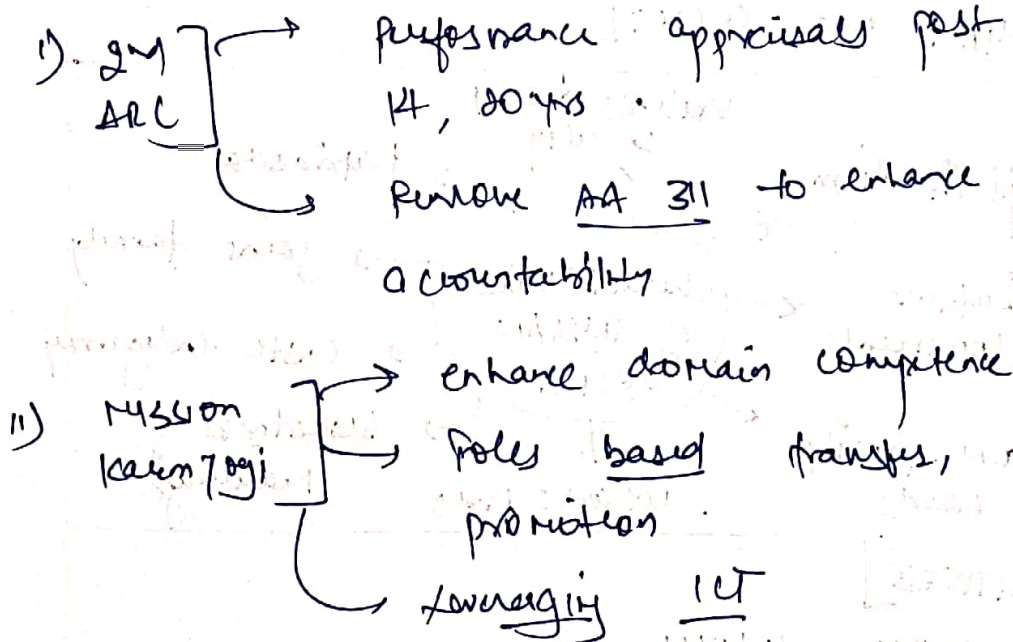 i). 2nd performance appraisals post
ARC 14, 20 yrs.
Remove AA 311 to enhance
accountability
ii) Mission enhance domain competence
Karmyogi Roles based transfer,
promotion.
Leveraging ICT